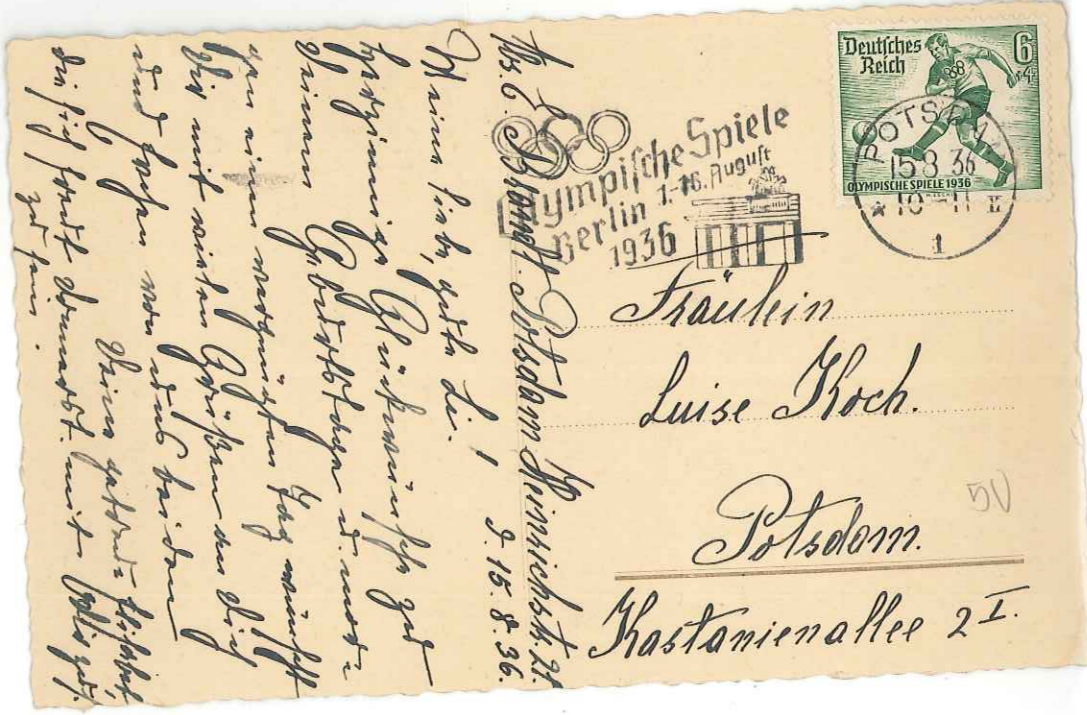 Deutsches
Reich
6
+4
OLYMPISCHE SPIELE 1936
POTSDAM
15.8.36
* 10-11 V
1
Olympische Spiele
Berlin 1.-16. August
1936
Fräulein
Luise Koch.
Potsdam.
Kastanienallee 2 I.
5V
Potsdam
P. 15.8.36.
Meine liebe, gute Li.!
Herzinnige Glückwünsche zu
Deinem Geburtstage u. morgen
einen vergnügten Tag wünscht
Dir mit vielen Grüßen an Dich
und von uns beiden
Deine
die sich freut Donnerst. mit
zu sein.